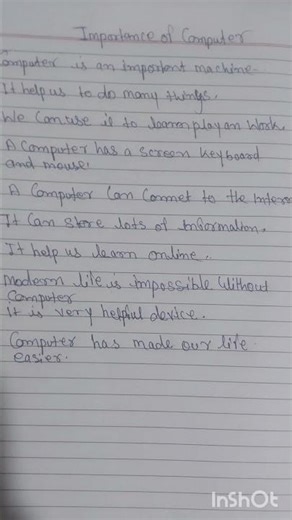 Importance of Computer
Computer is an important machine.
It help us to do many things.
We Can use is to learn play an Work.
A Computer has a screen Keyboard
and mouse.
A Computer Can Connet to the Inter
It Can store lots of Information.
It help us learn online.
Modern life is impossible Without
Computer
It is very helpful device.
Computer has made our life
easier.
InShOt